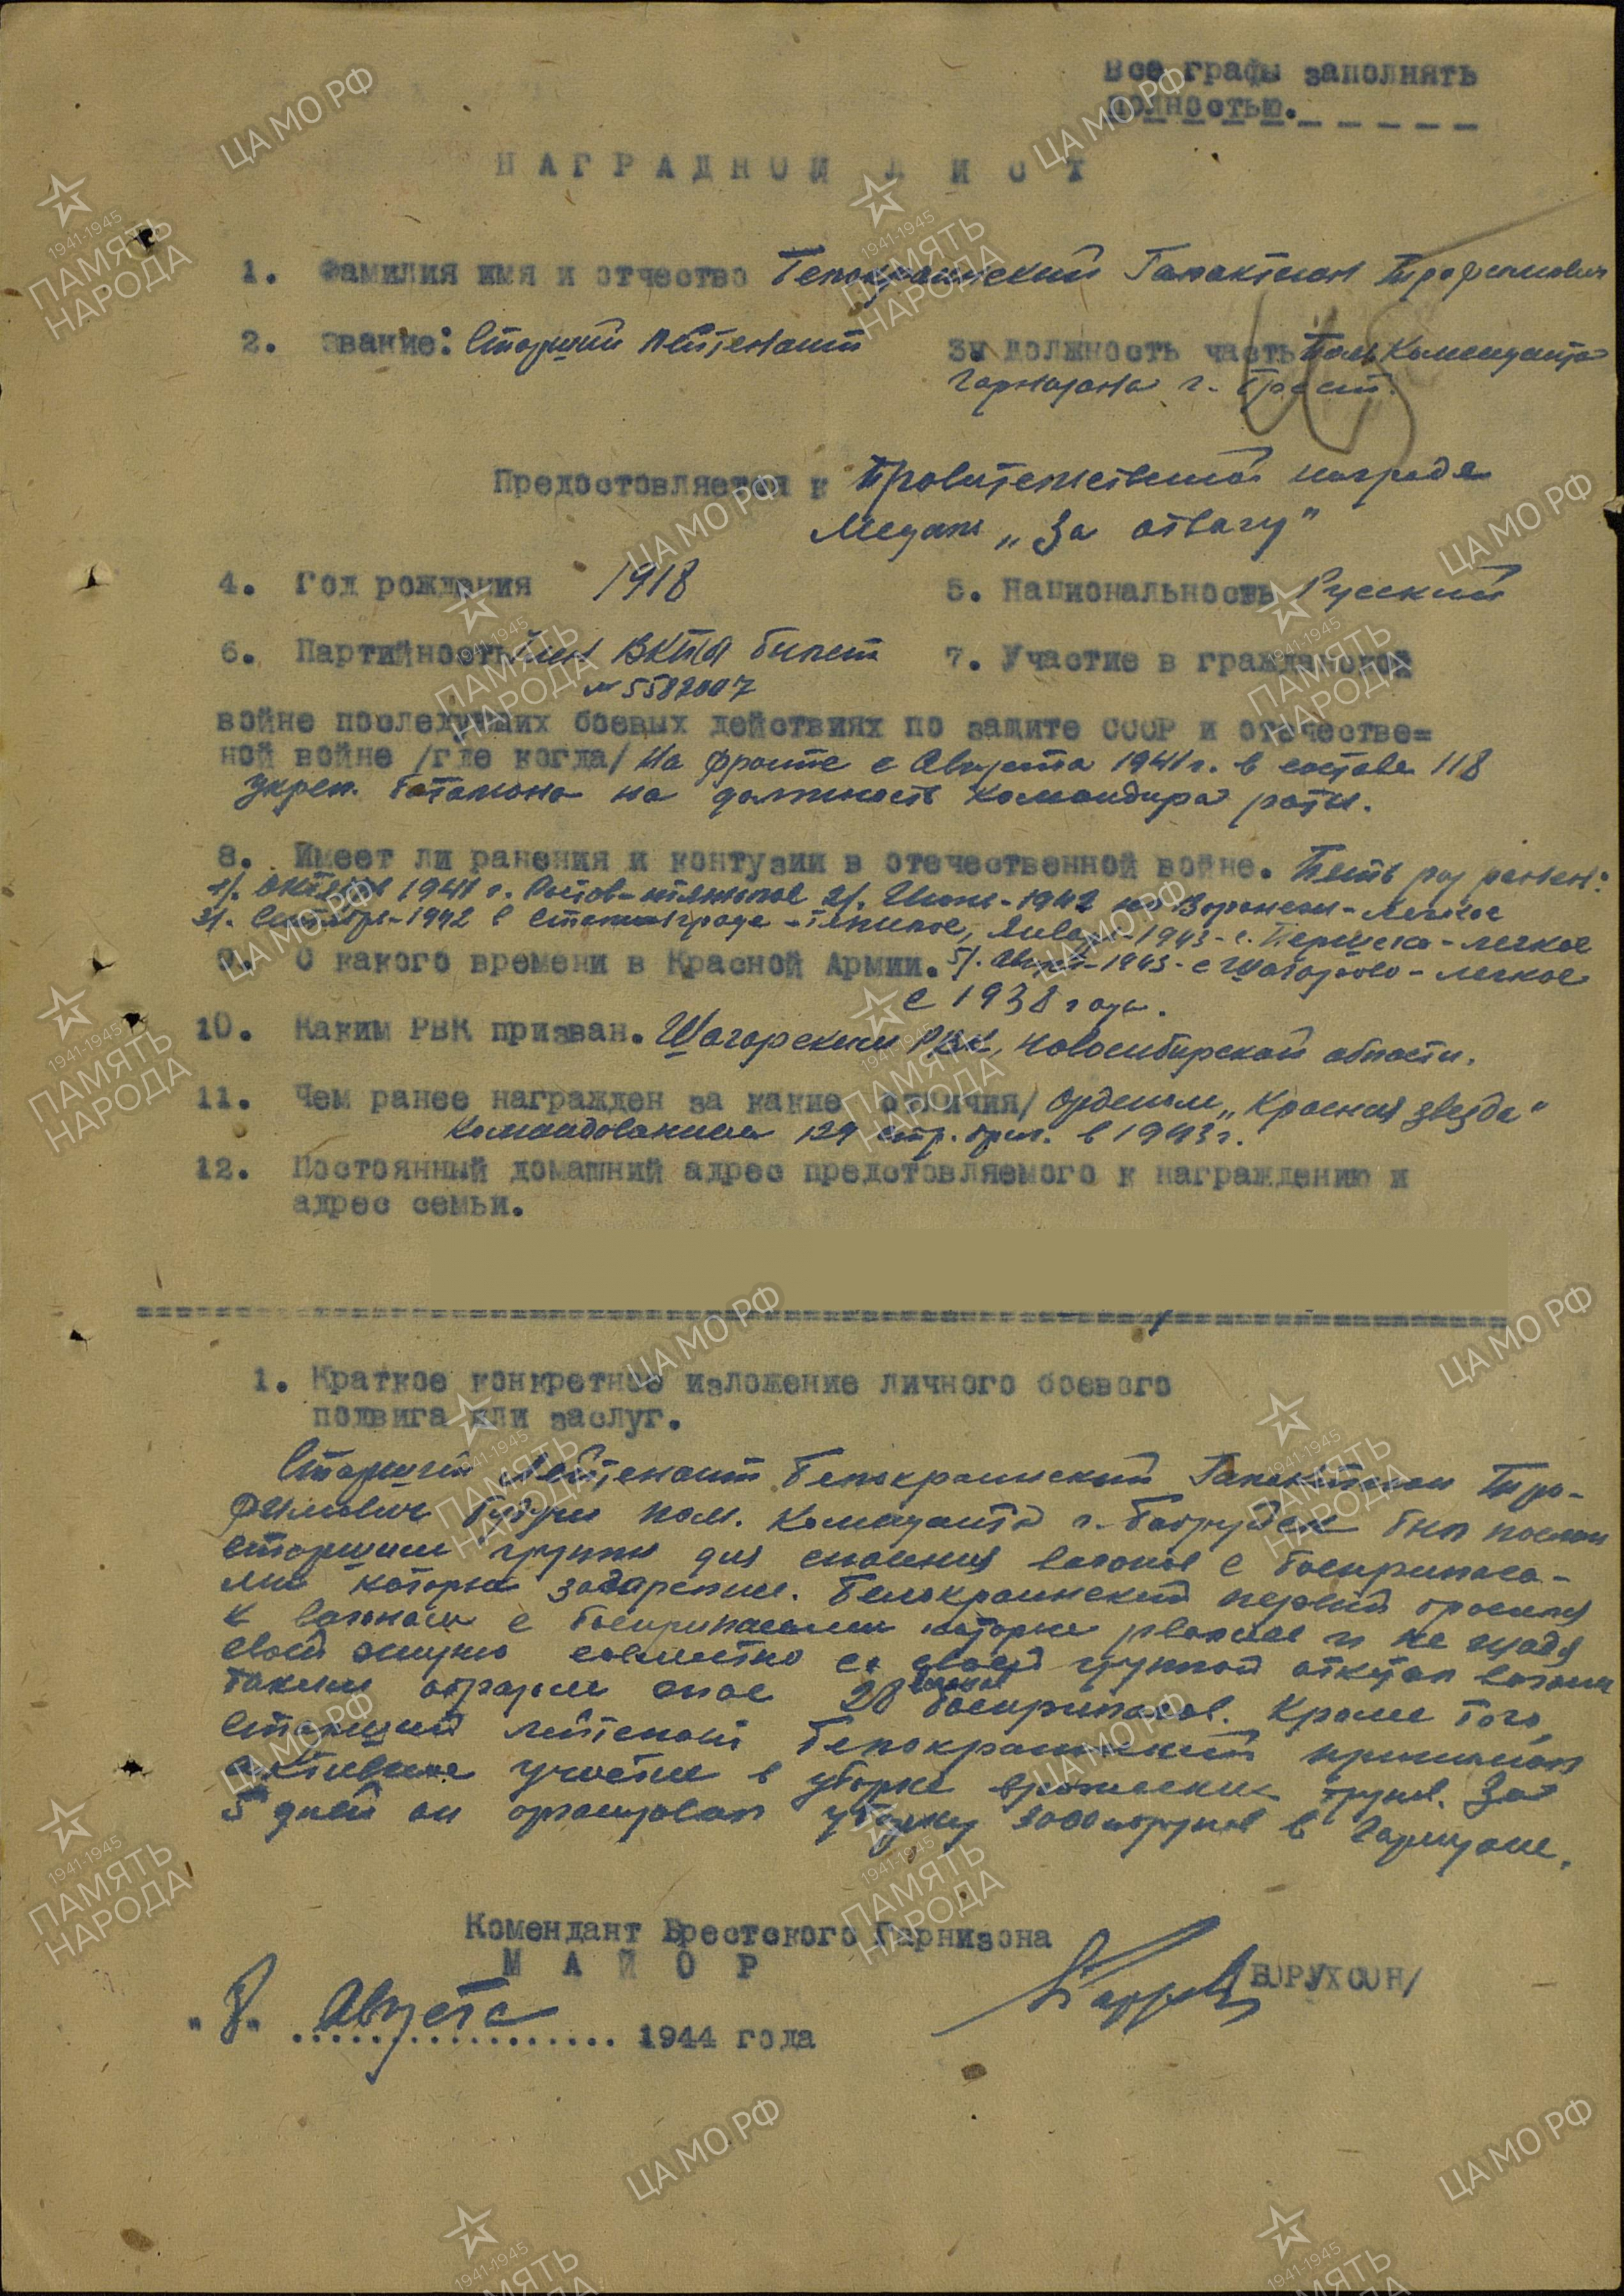 Все графы заполнять
полностью.
НАГРАДНОЙ ЛИСТ
1. Фамилия имя и отчество Белокраинский Галактион Трофимович
2. Звание: Старший лейтенант
3. должность часть Пом Коменданта
Гарнизона г. Брест.
Предоставляется к Правительственной награде
Медали „За отвагу"
4. Год рождения 1918
5. Национальность Русский
6. Партийность Член ВКПб билет
№ 5582007
7. Участие в гражданской
войне последующих боевых действиях по защите СССР и отечестве=
ной войне /где когда/ На фронте с Августа 1941 г. в составе 118
укреп. батальона на должность командира роты.
8. Имеет ли ранения и контузии в отечественной войне. Пять раз ранен:
1/. октября 1941 г. Ростов - тяжелое 2/. Июль - 1942 Воронеж - легкое
3/. Сентябрь - 1942 в Сталинграде - тяжелое, Январь - 1943 - с. - легкое
9. С какого времени в Красной Армии. 5/. Август - 1943 - с - легкое
с 1938 года.
10. Каким РВК призван. РВК, Новосибирской области.
11. Чем ранее награжден за какие отличия/ Орденом „Красная звезда"
Командованием 129 стр. бриг. в 1943 г.
12. Постоянный домашний адрес предстовляемого к награждению и
адрес семьи.
1. Краткое конкретное изложение личного боевого
подвига или заслуг.
Старший лейтенант Белокраинский Галактион Тро-
фимович будучи пом. коменданта г. Бобруйск был послан
старшим группы для спасения вагонов с боеприпаса-
ми которые загорелись. Белокраинский первый бросился
к вагонам с боеприпасами которые рвались и не щадя
своей жизни совместно со своей группой откатал вагоны
таким образом спас 20 вагонов боеприпасов. Кроме того
Старший лейтенант Белокраинский принимал
активное участие в уборке вражеских трупов. За
5 дней он организовал уборку трупов в Гарнизоне.
Комендант Брестского Гарнизона
МАЙОР
БОРУХСОН/
„8" Августа 1944 года
ЦА МО РФ
1941-1945
ПАМЯТЬ
НАРОДА